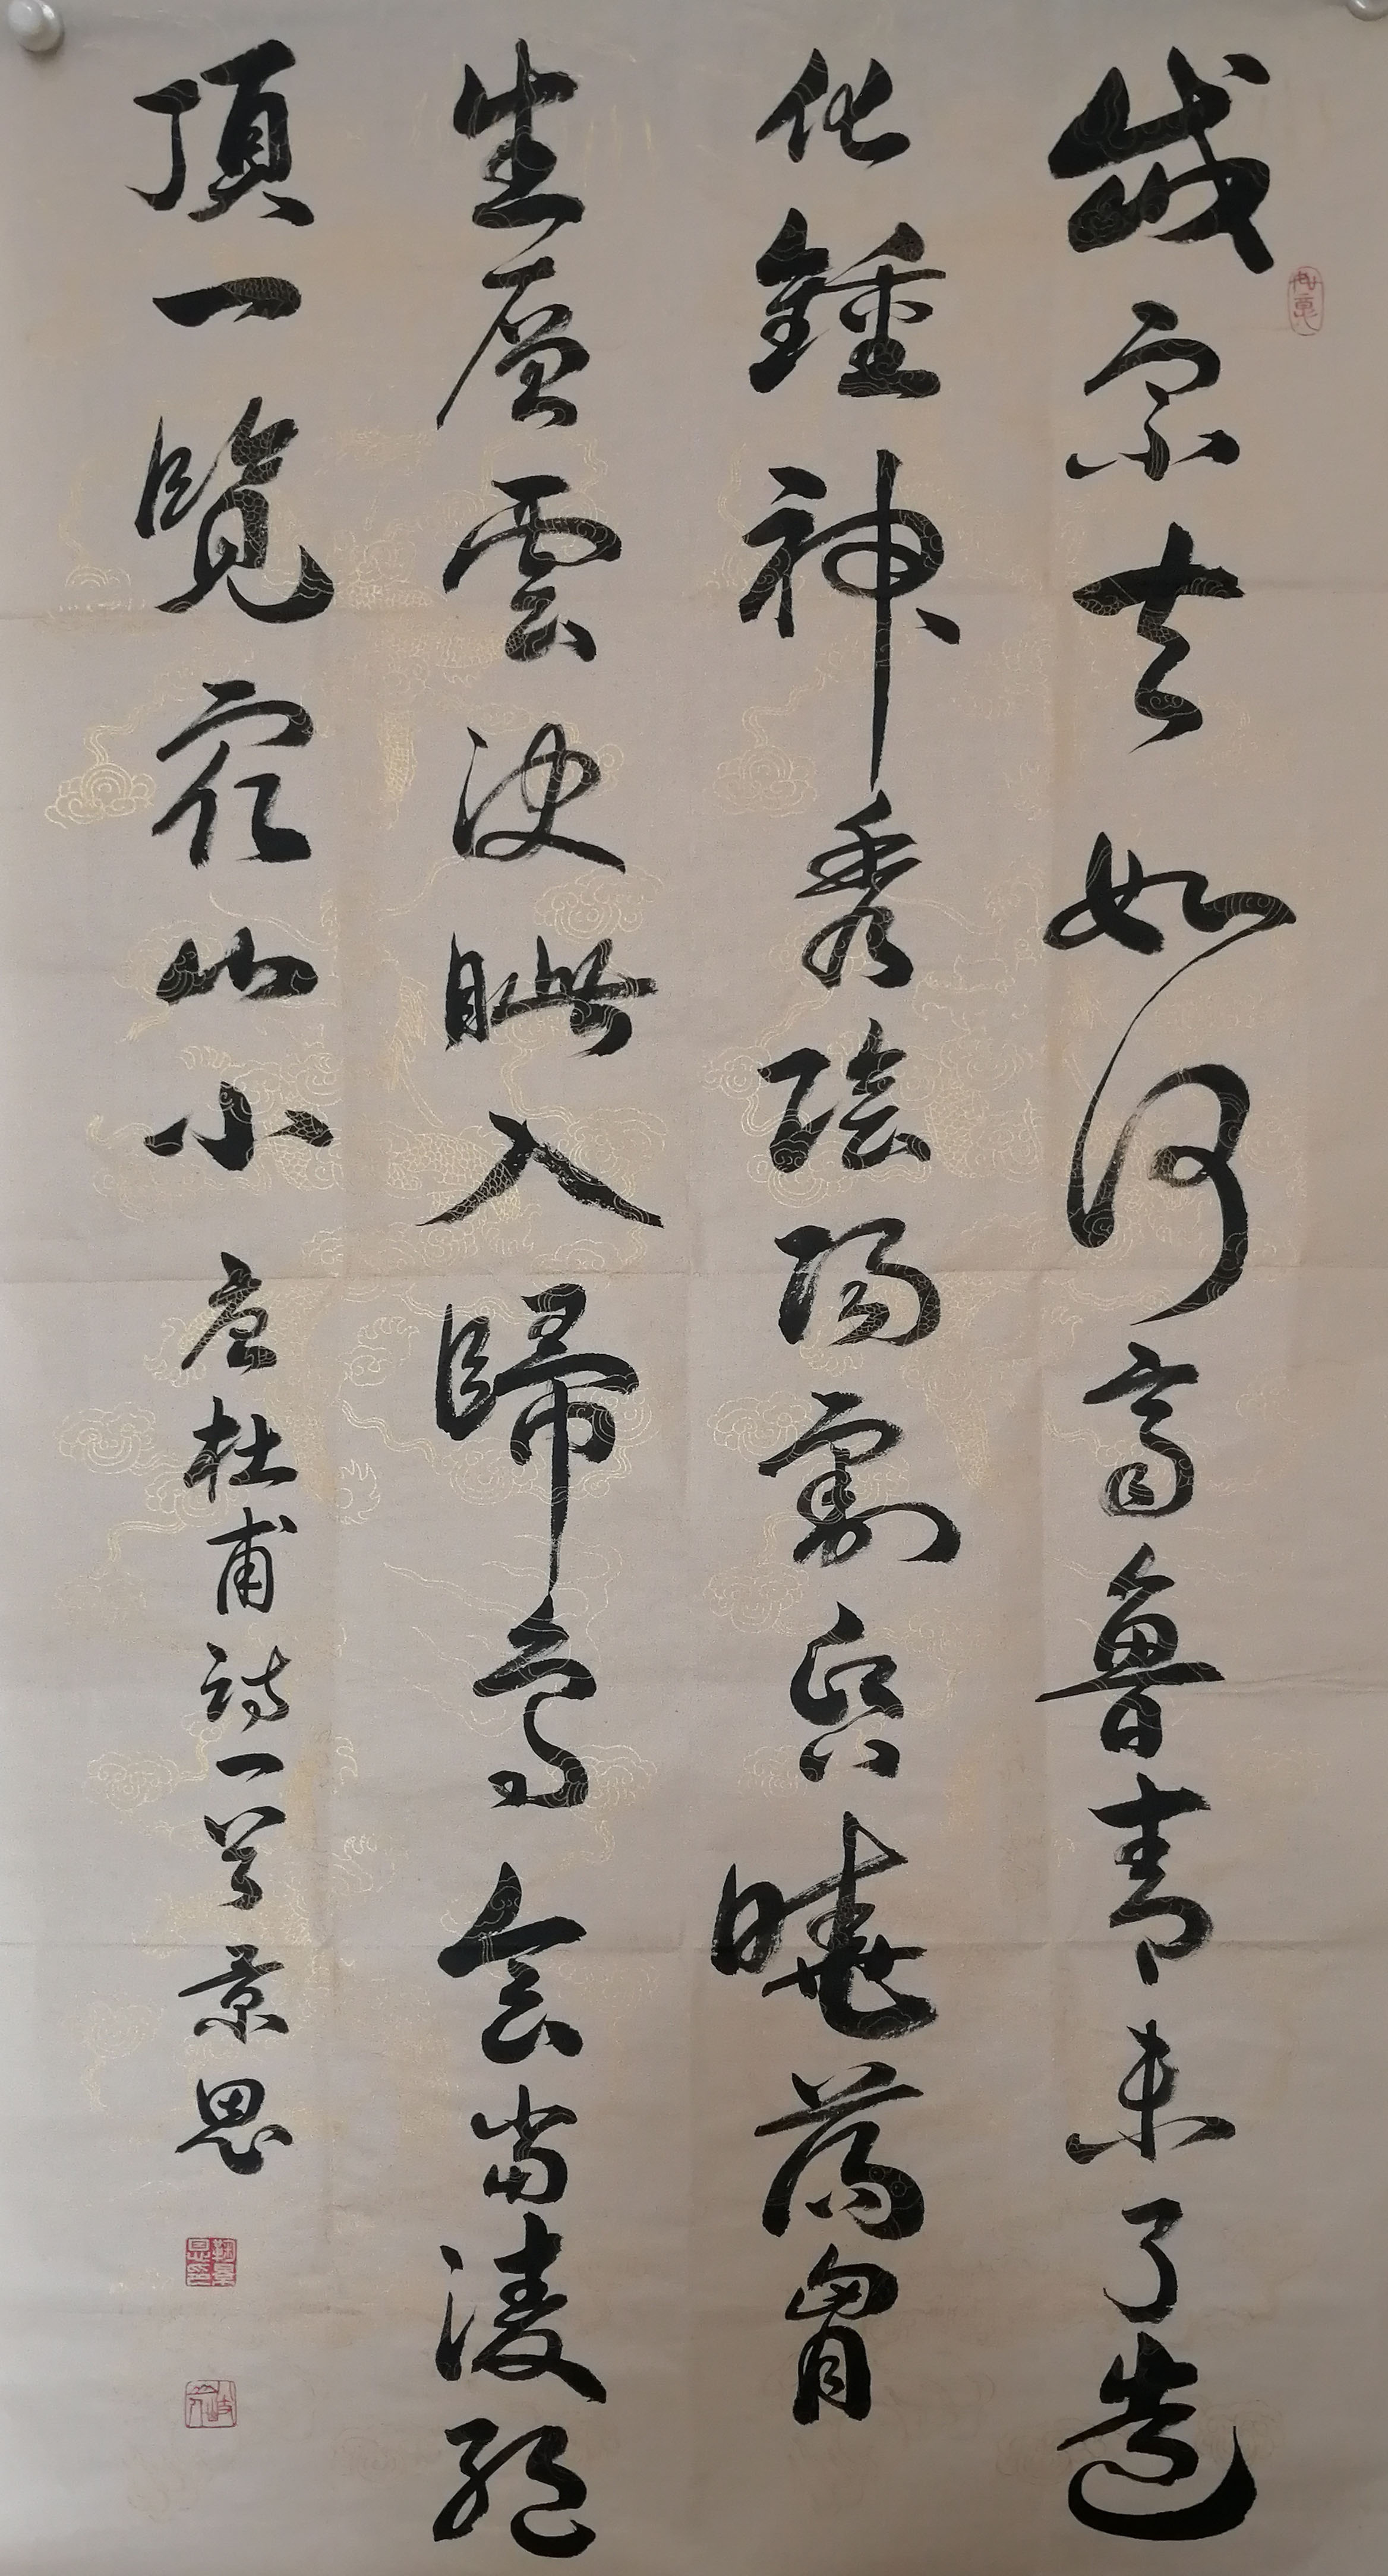 如意
岱宗夫如何齊魯青未了造
化鍾神秀陰陽割昏曉蕩胷
生層雲決眦入歸鳥會當淩絕
頂一覽衆山小 唐杜甫詩一首 景思